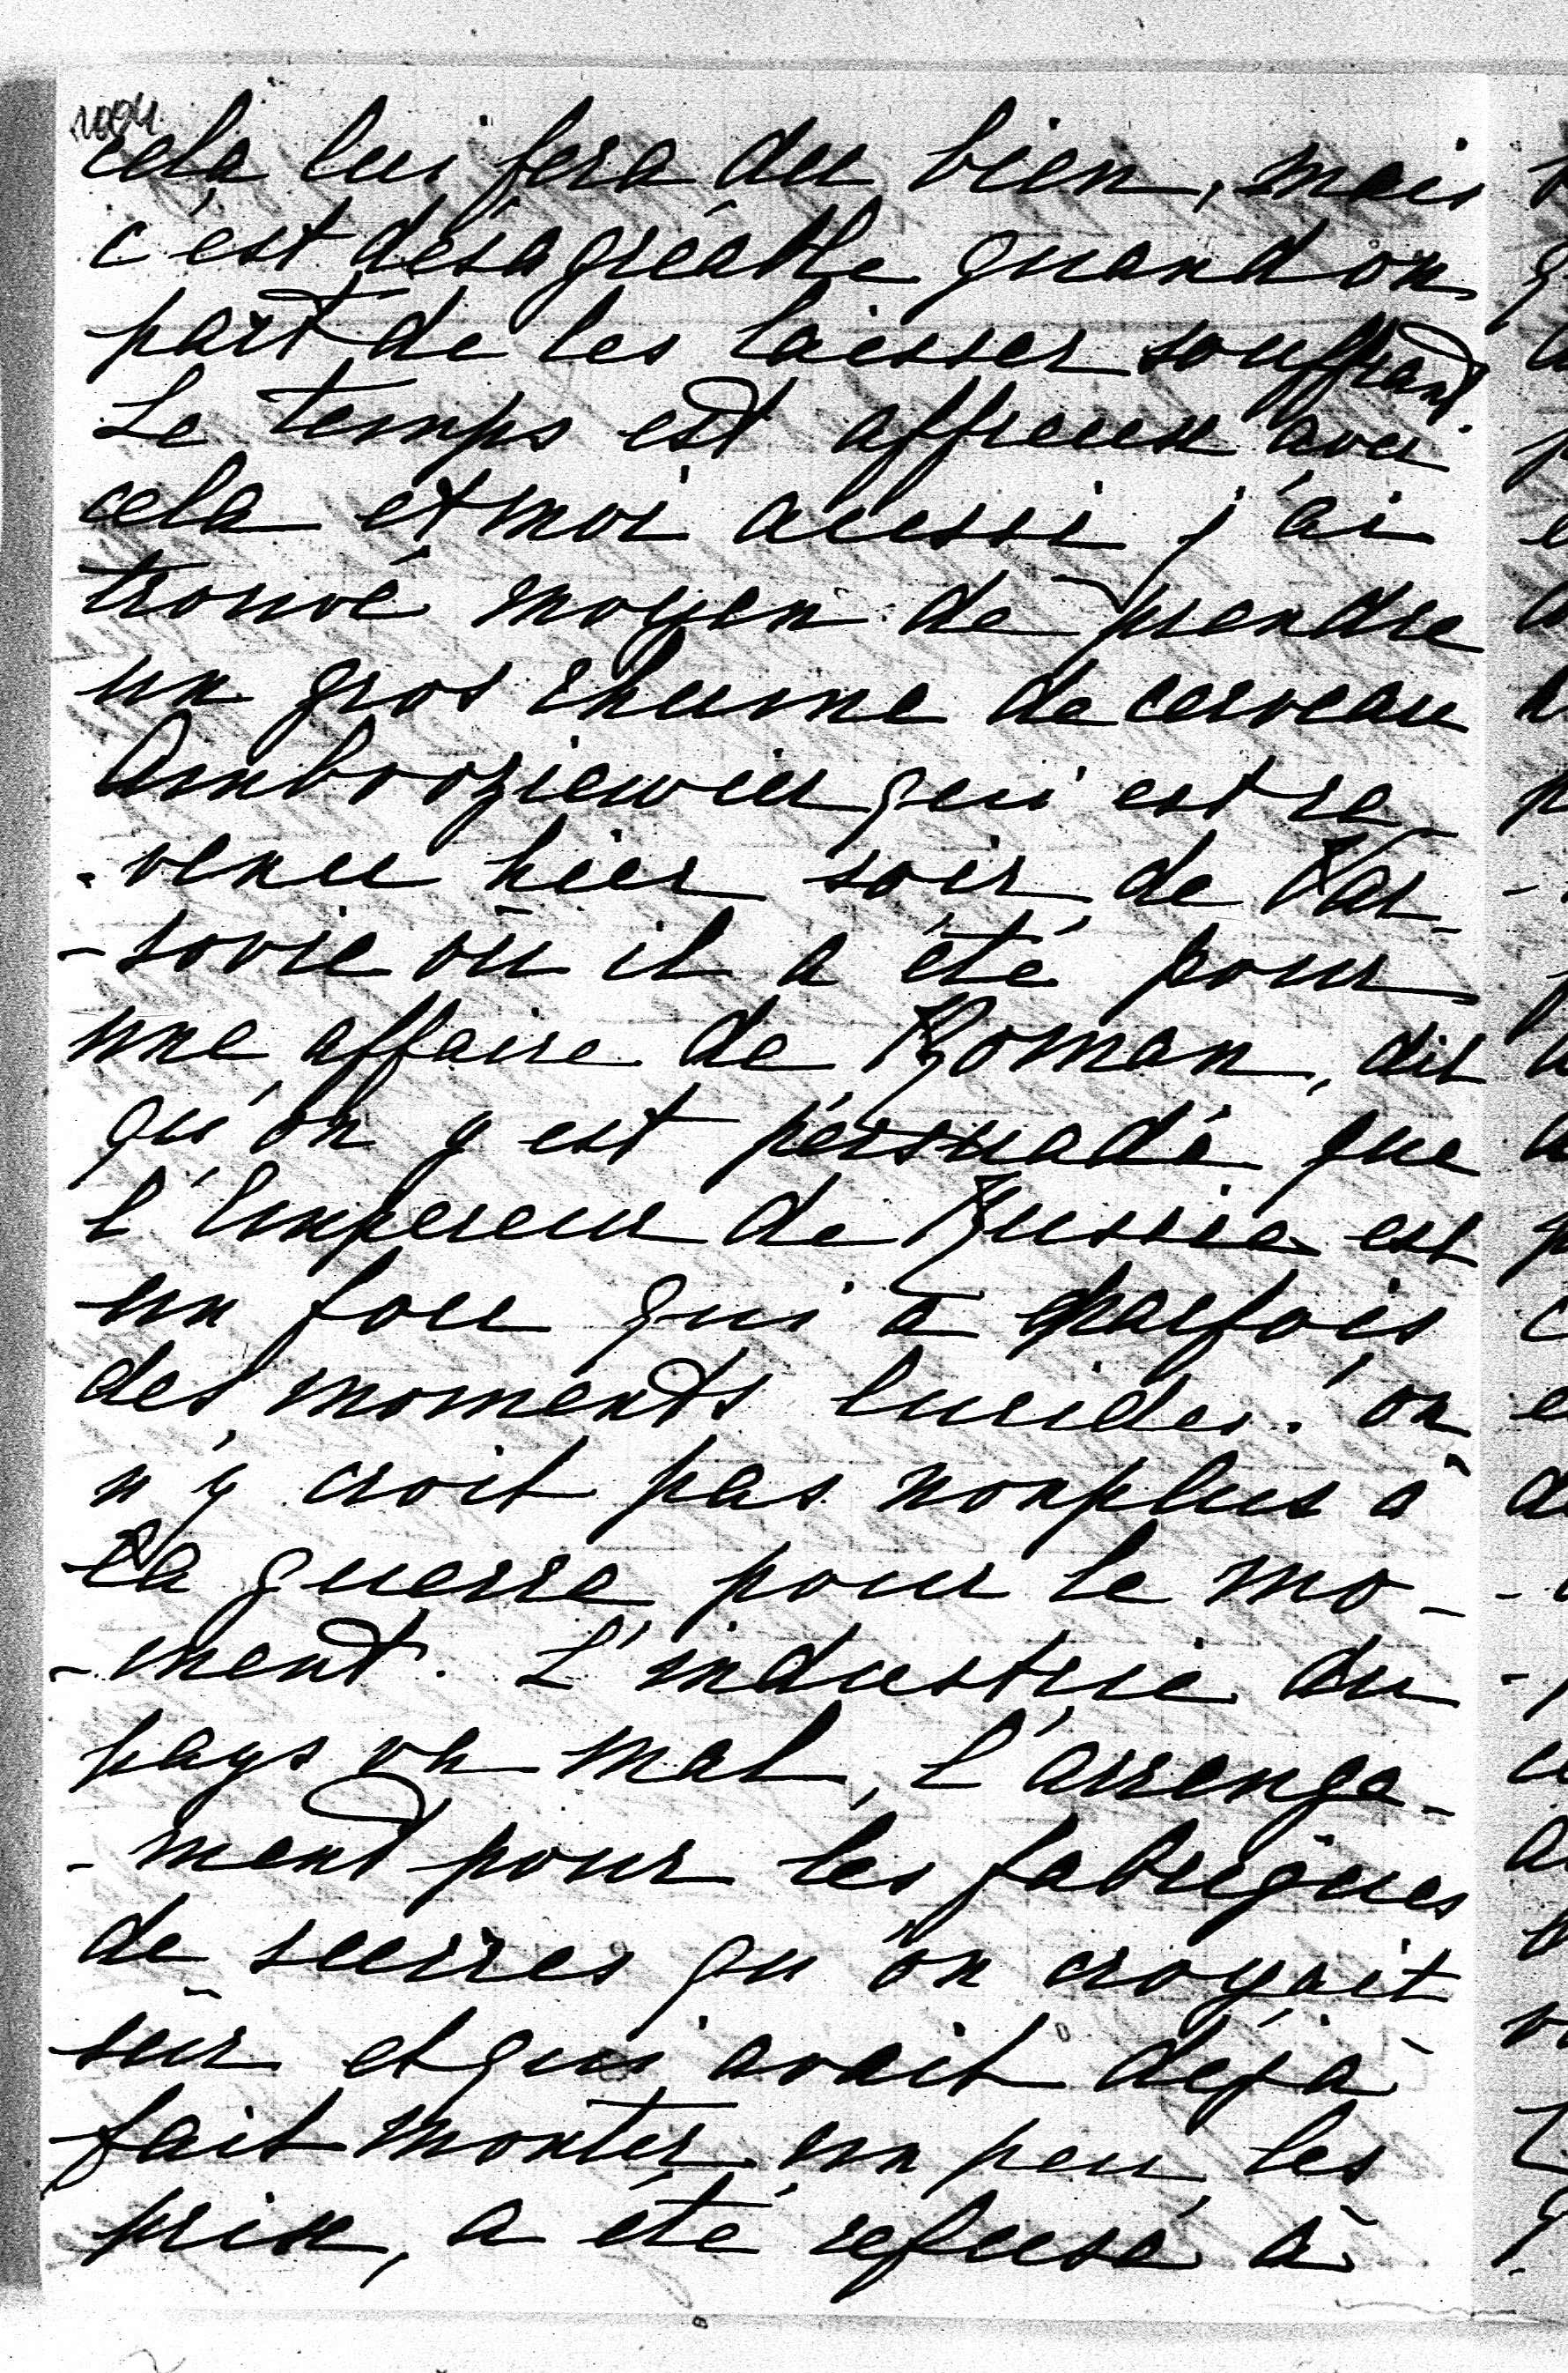 cela lui fera du bien, mais
c'est désagréable quand on
part de les laisser souffrant
Le temps est affreux avec
cela et moi aussi j'ai
trouvé moyen de prendre
un gros rhume de cerveau
qui est re-
-venu hier soir de Var-
-sovie où il a été pour
une affaire de Roman, dit
qu'on y est persuadé que
l'Empereur de Russie est
un fou qui a parfois
des moments lucides. on
n'y croit pas nonplus à
la guerre pour le mo-
-ment. L'industrie du
pays va mal, l'arrenge-
-ment pour les fabriques
de sucres qu'on croyait
sûr et qui avait déjà
fait monter un peu les
prix, a été refusé à